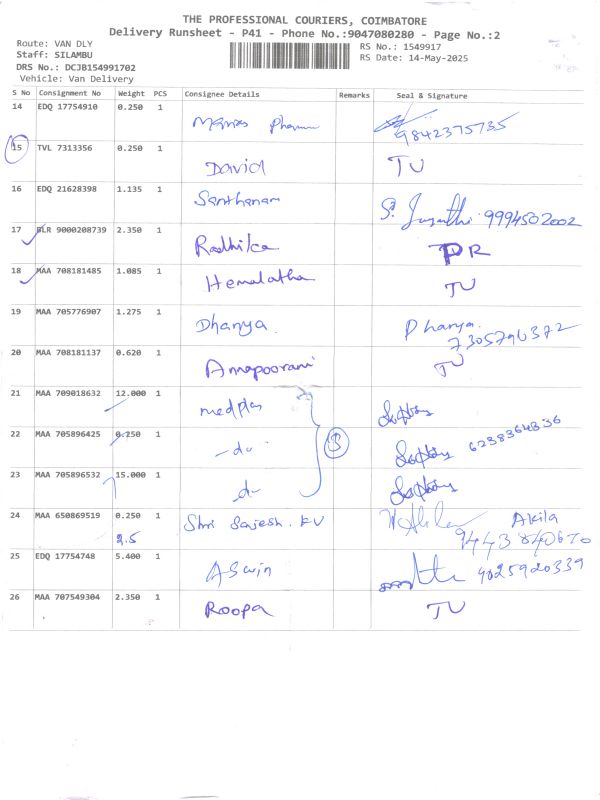 THE PROFESSIONAL COURIERS, COIMBATORE
Delivery Runsheet - P41 - Phone No.:9047080280 - Page No.:2
Route: VAN DLY
Staff: SILAMBU
DRS No.: DCJB154991702
Vehicle: Van Delivery
RS No.: 1549917
RS Date: 14-May-2025
S No Consignment No Weight PCS Consignee Details Remarks Seal & Signature
14 EDQ 17754910 0.250 1 9842375735
15 TVL 7313356 0.250 1 David TU
16 EDQ 21628398 1.135 1 Santhanam 9994502002
17 BLR 9000208739 2.350 1 Radhika PR
18 MAA 708181485 1.085 1 Hemalatha TU
19 MAA 705776907 1.275 1 Dhanya Dhanya 7305796372
20 MAA 708181137 0.620 1 Annapoorani TU
21 MAA 709018632 12.000 1 medplus
22 MAA 705896425 0.250 1 -do- 3 6238364336
23 MAA 705896532 15.000 1 do
24 MAA 650869519 0.250 1 Shri Sajesh. KV Akila
2.5 9443840670
25 EDQ 17754748 5.400 1 Aswin 9025920339
26 MAA 707549304 2.350 1 Roopa TU